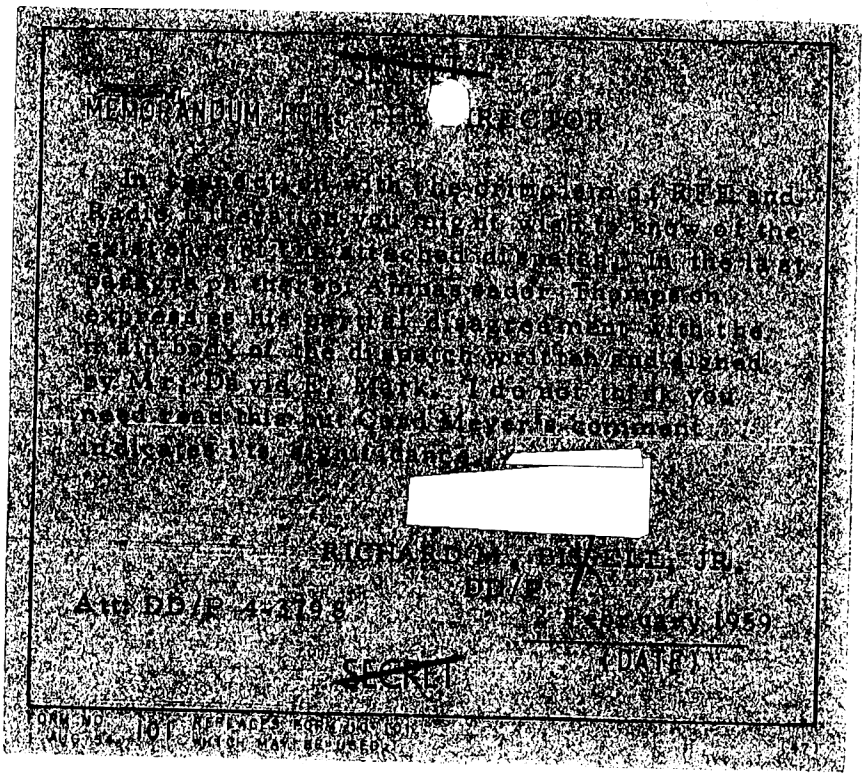 SECRET
MEMORANDUM FOR: THE DIRECTOR
In connection with the criticism of RFE and
Radio Liberation you might wish to know of the
existence of the attached dispatch. In the last
paragraph thereof Ambassador Thompson
expresses his partial disagreement with the
main body of the dispatch written and signed
by Mr. David E. Mark. I do not think you
need read this but Cord Meyer's comment
indicates its significance.
RICHARD M. BISSELL, JR.
DD/P
Att: DD/P 4-3798
2 February 1959
(DATE)
SECRET
FORM NO. 101 REPLACES FORM 10-101
1 AUG 54 WHICH MAY BE USED.
(47)